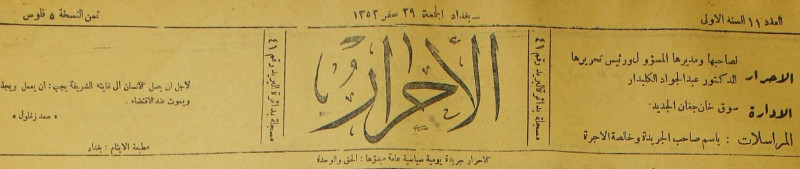 العدد ١١ السنة الاولى
بغداد الجمعة ٢٩ صفر ١٣٥٣
ثمن النسخة ٥ فلوس
الاحرار
لصاحبها ومديرها المسؤول ورئيس تحريرها
الدكتور عبدالجواد الكليدار
الادارة
سوق خان جغان الجديد
المراسلات : باسم صاحب الجريدة وخالصة الاجرة
مسجلة بدائرة البريد رقم ٤١
الأحرار
مسجلة بدائرة البريد رقم ٤١
لاجل ان يصل الانسان الى غايته الشريفة يجب : ان يعمل ويجد
ويموت عند الاقتضاء .
« سعد زغلول »
مطبعة الايتام : بغداد
الاحرار جريدة يومية سياسية عامة مبدؤها : الحق والوحدة